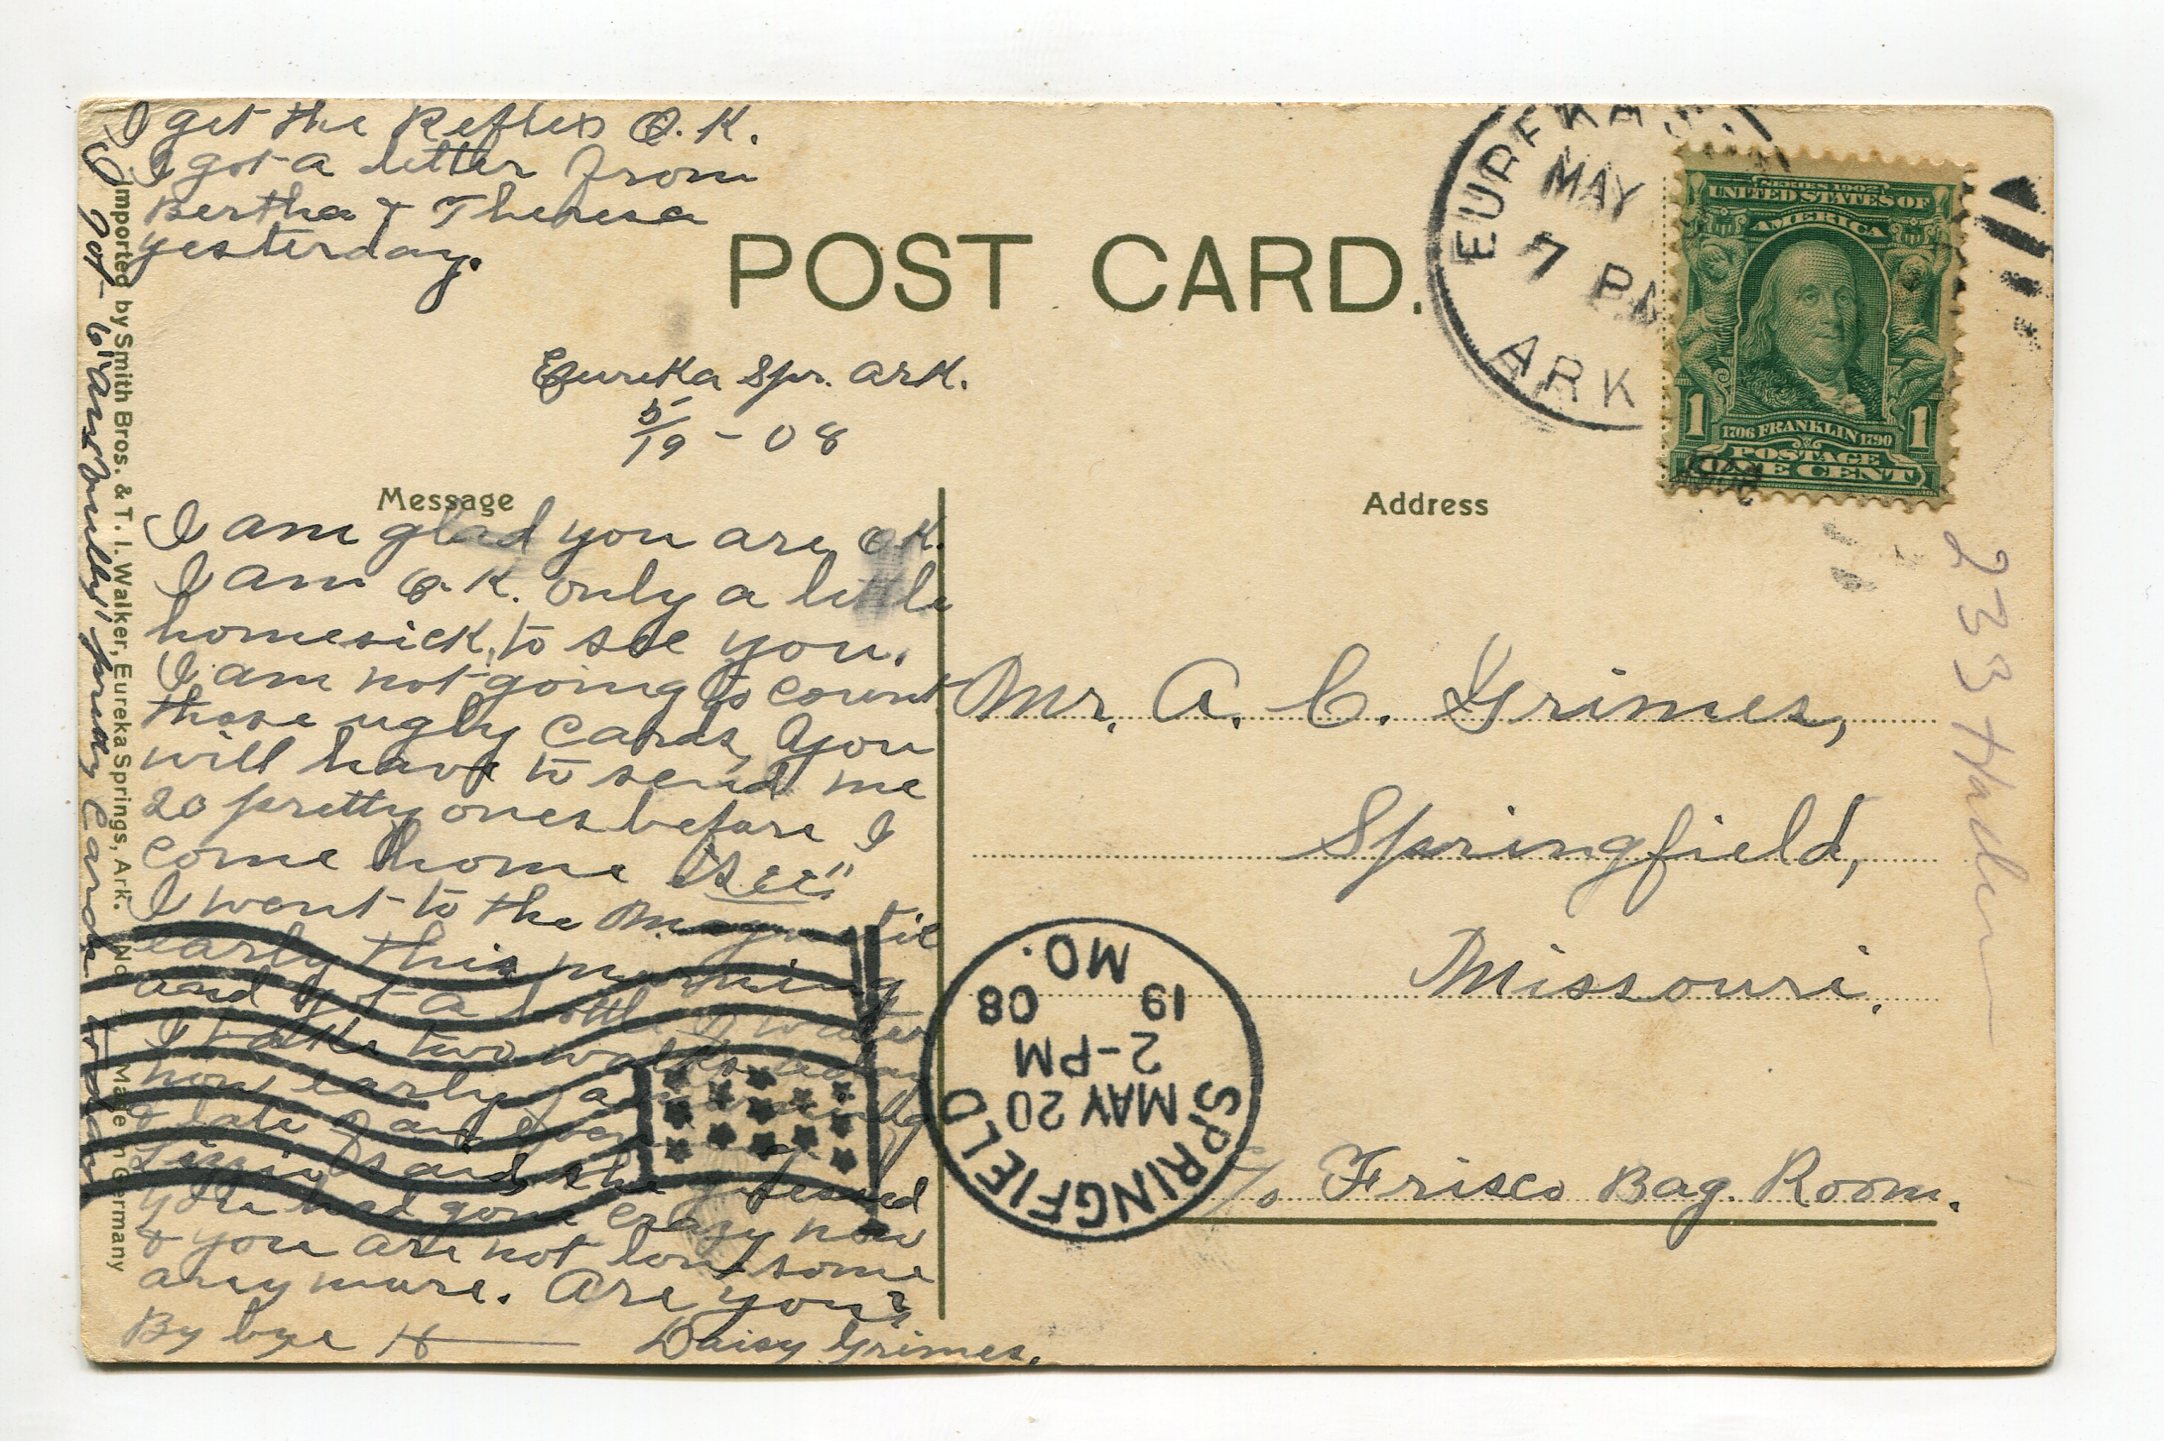 I get the Reflex O.K.
I got a letter from
Bertha & Theresa
yesterday.
POST CARD.
Eureka Spr. Ark.
5/19 - 08
Message
I am glad you are O.K.
I am O.K. only a little
homesick, to see you.
I am not going to count
those ugly cards, you
will have to send me
20 pretty ones before I
come home "see"
I went to the Magnetic
early this morning
and got a bottle of water
I take two walks a day
now, early
& late
Lizzie said, she guessed
you had gone crazy now
& you are not lonesome
any more. Are you?
By bye H — Daisy Grimes.
I got 6 "Aunt pretty cards to day
Imported by Smith Bros. & T. I. Walker, Eureka Springs, Ark. No. Made in Germany
EUREKA
MAY
7 PM
ARK
SERIES 1902
UNITED STATES OF
AMERICA
1 1
1706 FRANKLIN 1790
POSTAGE
ONE CENT
Address
Mr. A. C. Grimes,
Springfield,
Missouri.
c/o Frisco Bag. Room.
233
SPRINGFIELD
MAY 20
2-PM
19 08
MO.